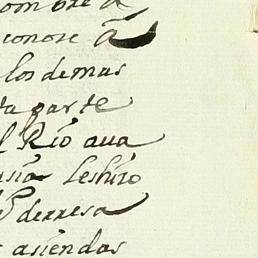 nombre a
conose â
los demas
ta parte
l Rio aua
asia leshizo
derresa
asiendas